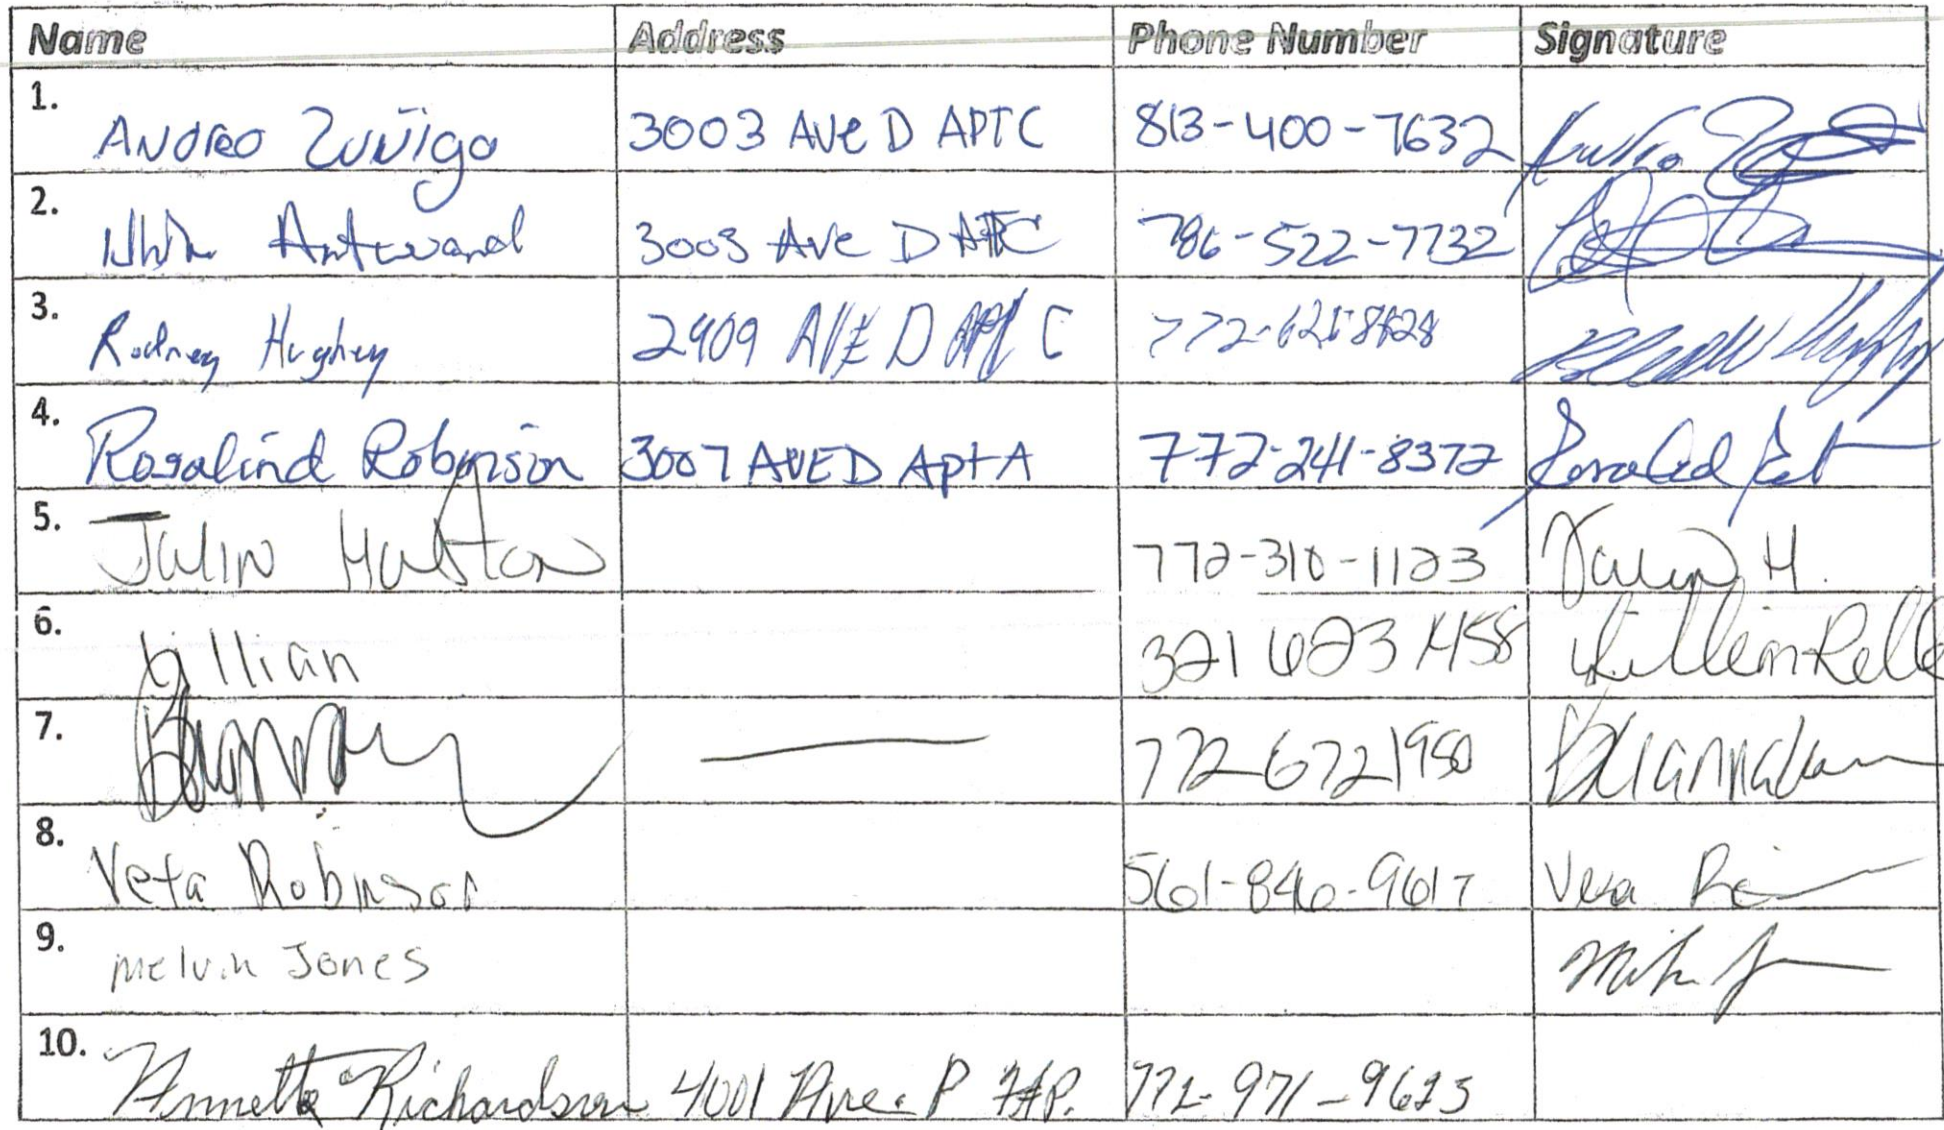 Name Address Phone Number Signature
1. Andreo Zuñiga 3003 Ave D APT C 813-400-7632
2. Antwand 3003 Ave D APT C 786-522-7732
3. Rodney Hughey 2909 AVE D APT C 772-
4. Rosalind Robinson 3007 AVE D Apt A 772-241-8372
5. Julin Hutton 772-310-1123 H.
6. Lillian 321 623 1458
7. 772-672 1950
8. Veta Robinson 561-846-9617 Veta
9. Melvin Jones
10. Annette Richardson 4001 Ave. P F.P. 772-971-9625